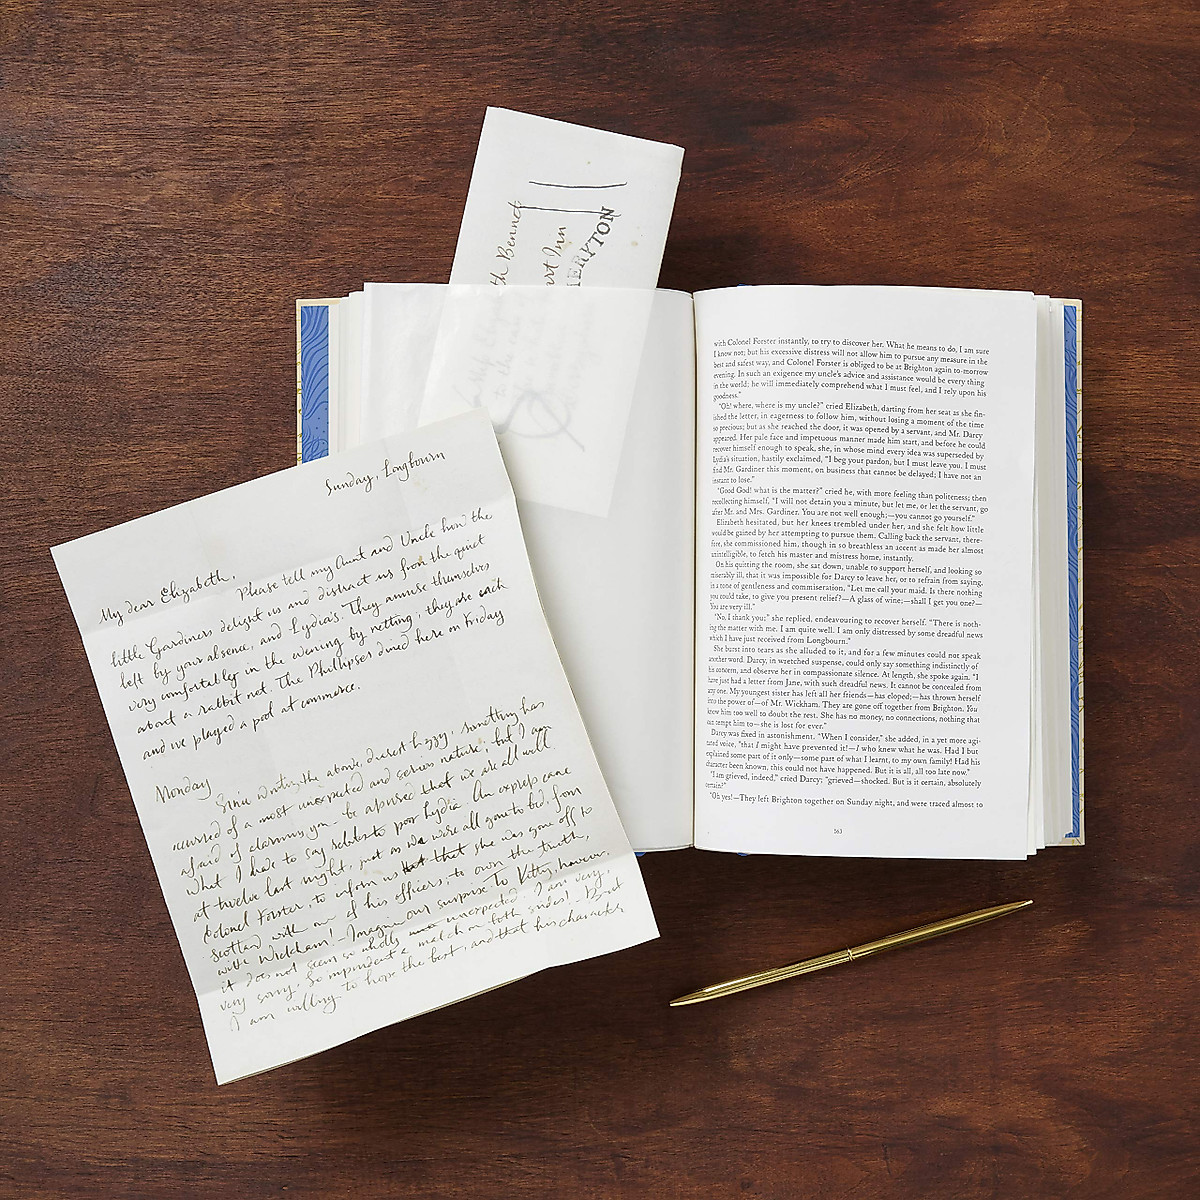 th Bennet
art Inn
MERYTON
Sunday, Longbourn
My dear Elizabeth,
Please tell my Aunt and Uncle how the
little Gardiners delight us and distract us from the quiet
left by your absence, and Lydia's. They amuse themselves
very comfortably in the evening by netting; they are each
about a rabbit net. The Phillipses dined here on Friday
and we played a pool at commerce.
Monday
Since writing the above, dearest Lizzy, something has
occurred of a most unexpected and serious nature; but I am
afraid of alarming you - be assured that we are all well.
What I have to say relates to poor Lydia. An express came
at twelve last night, just as we were all gone to bed, from
Colonel Forster, to inform us that she was gone off to
Scotland with one of his officers; to own the truth,
with Wickham! - Imagine our surprise. To Kitty, however,
it does not seem so wholly unexpected. I am very,
very sorry. So imprudent a match on both sides! - But
I am willing to hope the best, and that his character
with Colonel Forster instantly, to try to discover her. What he means to do, I am sure
I know not; but his excessive distress will not allow him to pursue any measure in the
best and safest way, and Colonel Forster is obliged to be at Brighton again to-morrow
evening. In such an exigence my uncle's advice and assistance would be every thing
in the world; he will immediately comprehend what I must feel, and I rely upon his
goodness."
"Oh! where, where is my uncle?" cried Elizabeth, darting from her seat as she fin-
ished the letter, in eagerness to follow him, without losing a moment of the time
so precious; but as she reached the door, it was opened by a servant, and Mr. Darcy
appeared. Her pale face and impetuous manner made him start, and before he could
recover himself enough to speak, she, in whose mind every idea was superseded by
Lydia's situation, hastily exclaimed, "I beg your pardon, but I must leave you. I must
find Mr. Gardiner this moment, on business that cannot be delayed; I have not an
instant to lose."
"Good God! what is the matter?" cried he, with more feeling than politeness; then
recollecting himself, "I will not detain you a minute, but let me, or let the servant, go
after Mr. and Mrs. Gardiner. You are not well enough;—you cannot go yourself."
Elizabeth hesitated, but her knees trembled under her, and she felt how little
would be gained by her attempting to pursue them. Calling back the servant, there-
fore, she commissioned him, though in so breathless an accent as made her almost
unintelligible, to fetch his master and mistress home, instantly.
On his quitting the room, she sat down, unable to support herself, and looking so
miserably ill, that it was impossible for Darcy to leave her, or to refrain from saying,
in a tone of gentleness and commiseration, "Let me call your maid. Is there nothing
you could take, to give you present relief?—A glass of wine;—shall I get you one?—
You are very ill."
"No, I thank you;" she replied, endeavouring to recover herself. "There is noth-
ing the matter with me. I am quite well. I am only distressed by some dreadful news
which I have just received from Longbourn."
She burst into tears as she alluded to it, and for a few minutes could not speak
another word. Darcy, in wretched suspense, could only say something indistinctly of
his concern, and observe her in compassionate silence. At length, she spoke again. "I
have just had a letter from Jane, with such dreadful news. It cannot be concealed from
any one. My youngest sister has left all her friends—has eloped;—has thrown herself
into the power of—of Mr. Wickham. They are gone off together from Brighton. You
know him too well to doubt the rest. She has no money, no connections, nothing that
can tempt him to—she is lost for ever."
Darcy was fixed in astonishment. "When I consider," she added, in a yet more agi-
tated voice, "that I might have prevented it!—I who knew what he was. Had I but
explained some part of it only—some part of what I learnt, to my own family! Had his
character been known, this could not have happened. But it is all, all too late now."
"I am grieved, indeed," cried Darcy; "grieved—shocked. But is it certain, absolutely
certain?"
"Oh yes!—They left Brighton together on Sunday night, and were traced almost to
163